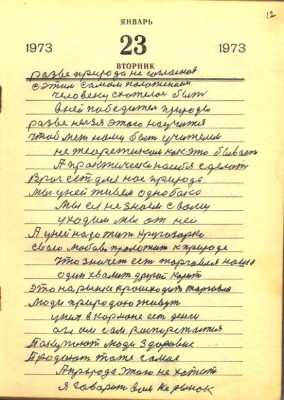 12
ЯНВАРЬ
1973 23 1973
ВТОРНИК
разве природа не согласная
с этим самым положением
человеку схотелос быт
в ней победител природы
разве нелзя этого научится
чтоб мет нашу быт учителем
не теоретиком как это бывает
А практически себя сделат
Враг ест для нас природа
мы у ней живем однобоко
Мы ея не знаем с
уходим мы от ней
А у ней надо жит
свою любов проложит к природе
Что значит ест торговля наша
один хвалит другой
Это на рынке происходит торговля
Люди природою живут
у них в кормоне ест денги
а
Покупают люди здоровие
Продают тоже самае
А природа этого не хотит
Я говорит вам не рынок